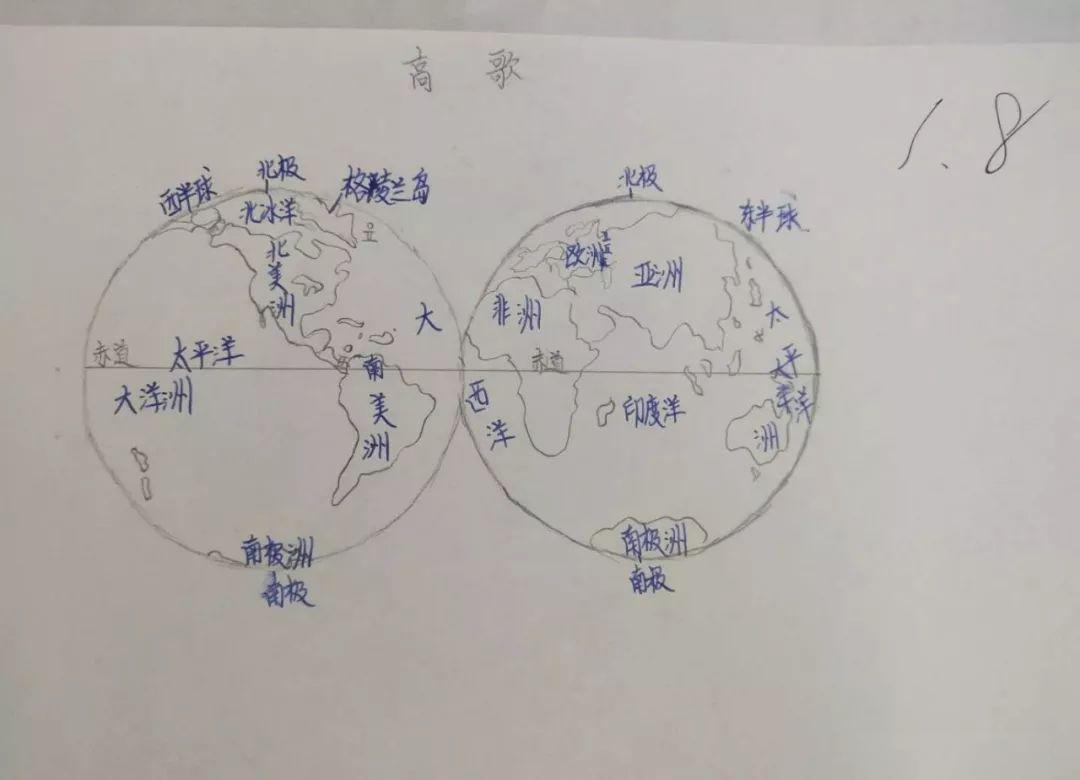 高 歌
1.8
西半球
北极
格陵兰岛
北冰洋
北
美
洲
大
赤道
太平洋
大洋洲
南
美
洲
南极洲
南极
北极
东半球
欧洲
亚洲
非洲
赤道
太
平
洋
西
洋
印度洋
洲
南极洲
南极